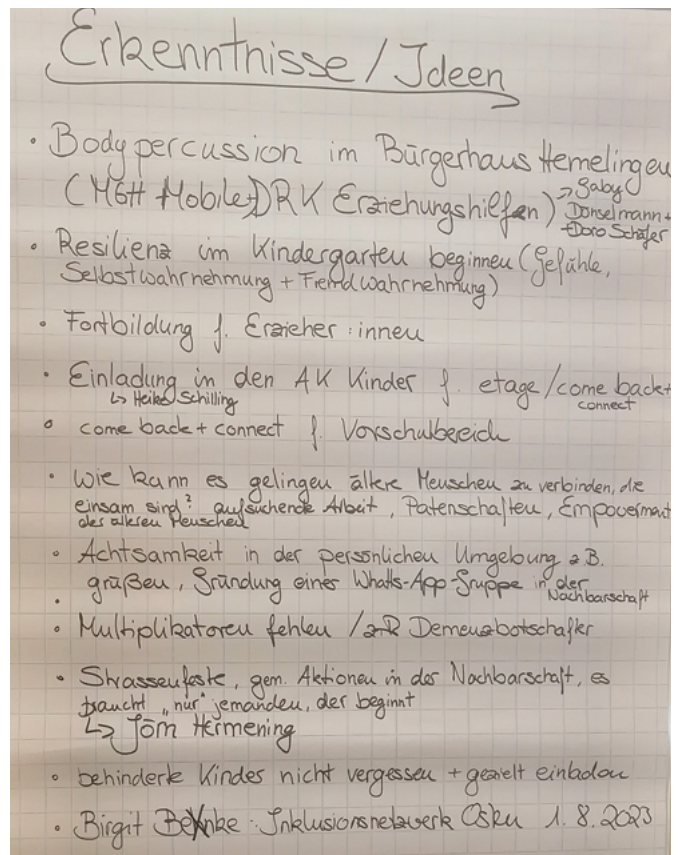 Erkenntnisse / Ideen
• Bodypercussion im Bürgerhaus Hemelingen
(MGH Mobile, DRK Erziehungshilfen) → Gaby
Donselmann +
+ Doro Schäfer
• Resilienz im Kindergarten beginnen (Gefühle,
Selbstwahrnehmung + Fremdwahrnehmung)
• Fortbildung f. Erzieher:innen
• Einladung in den AK Kinder f. etage/come back +
connect
↳ Heike Schilling
• come back + connect f. Vorschulbereich
• Wie kann es gelingen ältere Menschen zu verbinden, die
einsam sind? aufsuchende Arbeit, Patenschaften, Empowerment
des älteren Menschen
• Achtsamkeit in der persönlichen Umgebung z.B.
grüßen, Gründung einer Whats-App-Gruppe in der
Nachbarschaft
• Multiplikatoren fehlen / zB Demenzbotschafter
• Strassenfeste, gem. Aktionen in der Nachbarschaft, es
braucht „nur" jemanden, der beginnt
↳ Jörn Hermening
• behinderte Kinder nicht vergessen + gezielt einladen
• Birgit Behnke: Inklusionsnetzwerk Osku 1.8.2023